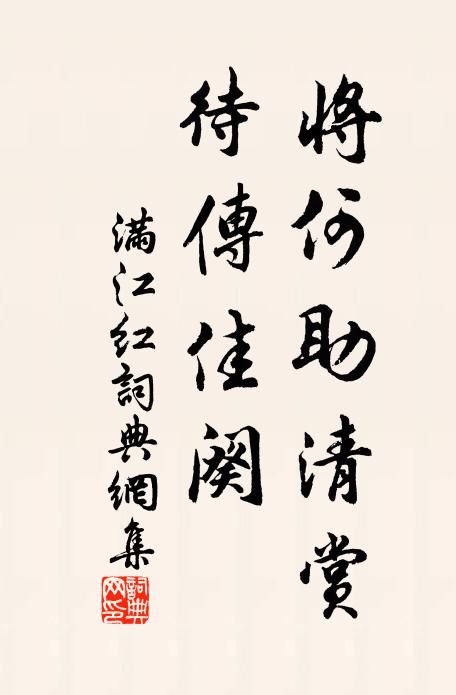 將何助清賞
待傳佳闋
滿江紅詞典網集
詞典网印